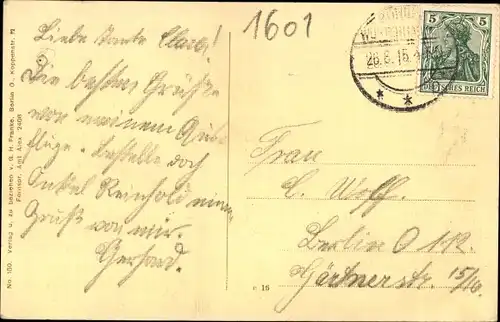 1601
Liebe Tante Clara!
Die besten Grüße
von meinem Aus-
fluge. Bestelle doch
Onkel Reinhold einen
Gruß von mir
Gerhard.
No. 100. Verlag u. zu beziehen v. G. H. Franke, Berlin O., Koppenstr. 12
Fernspr. Amt Alex 2406
26.6.15.
5 5
DEUTSCHES REICH
Frau
C. Wolff.
Berlin O 112.
Gärtnerstr. 15/16.
16